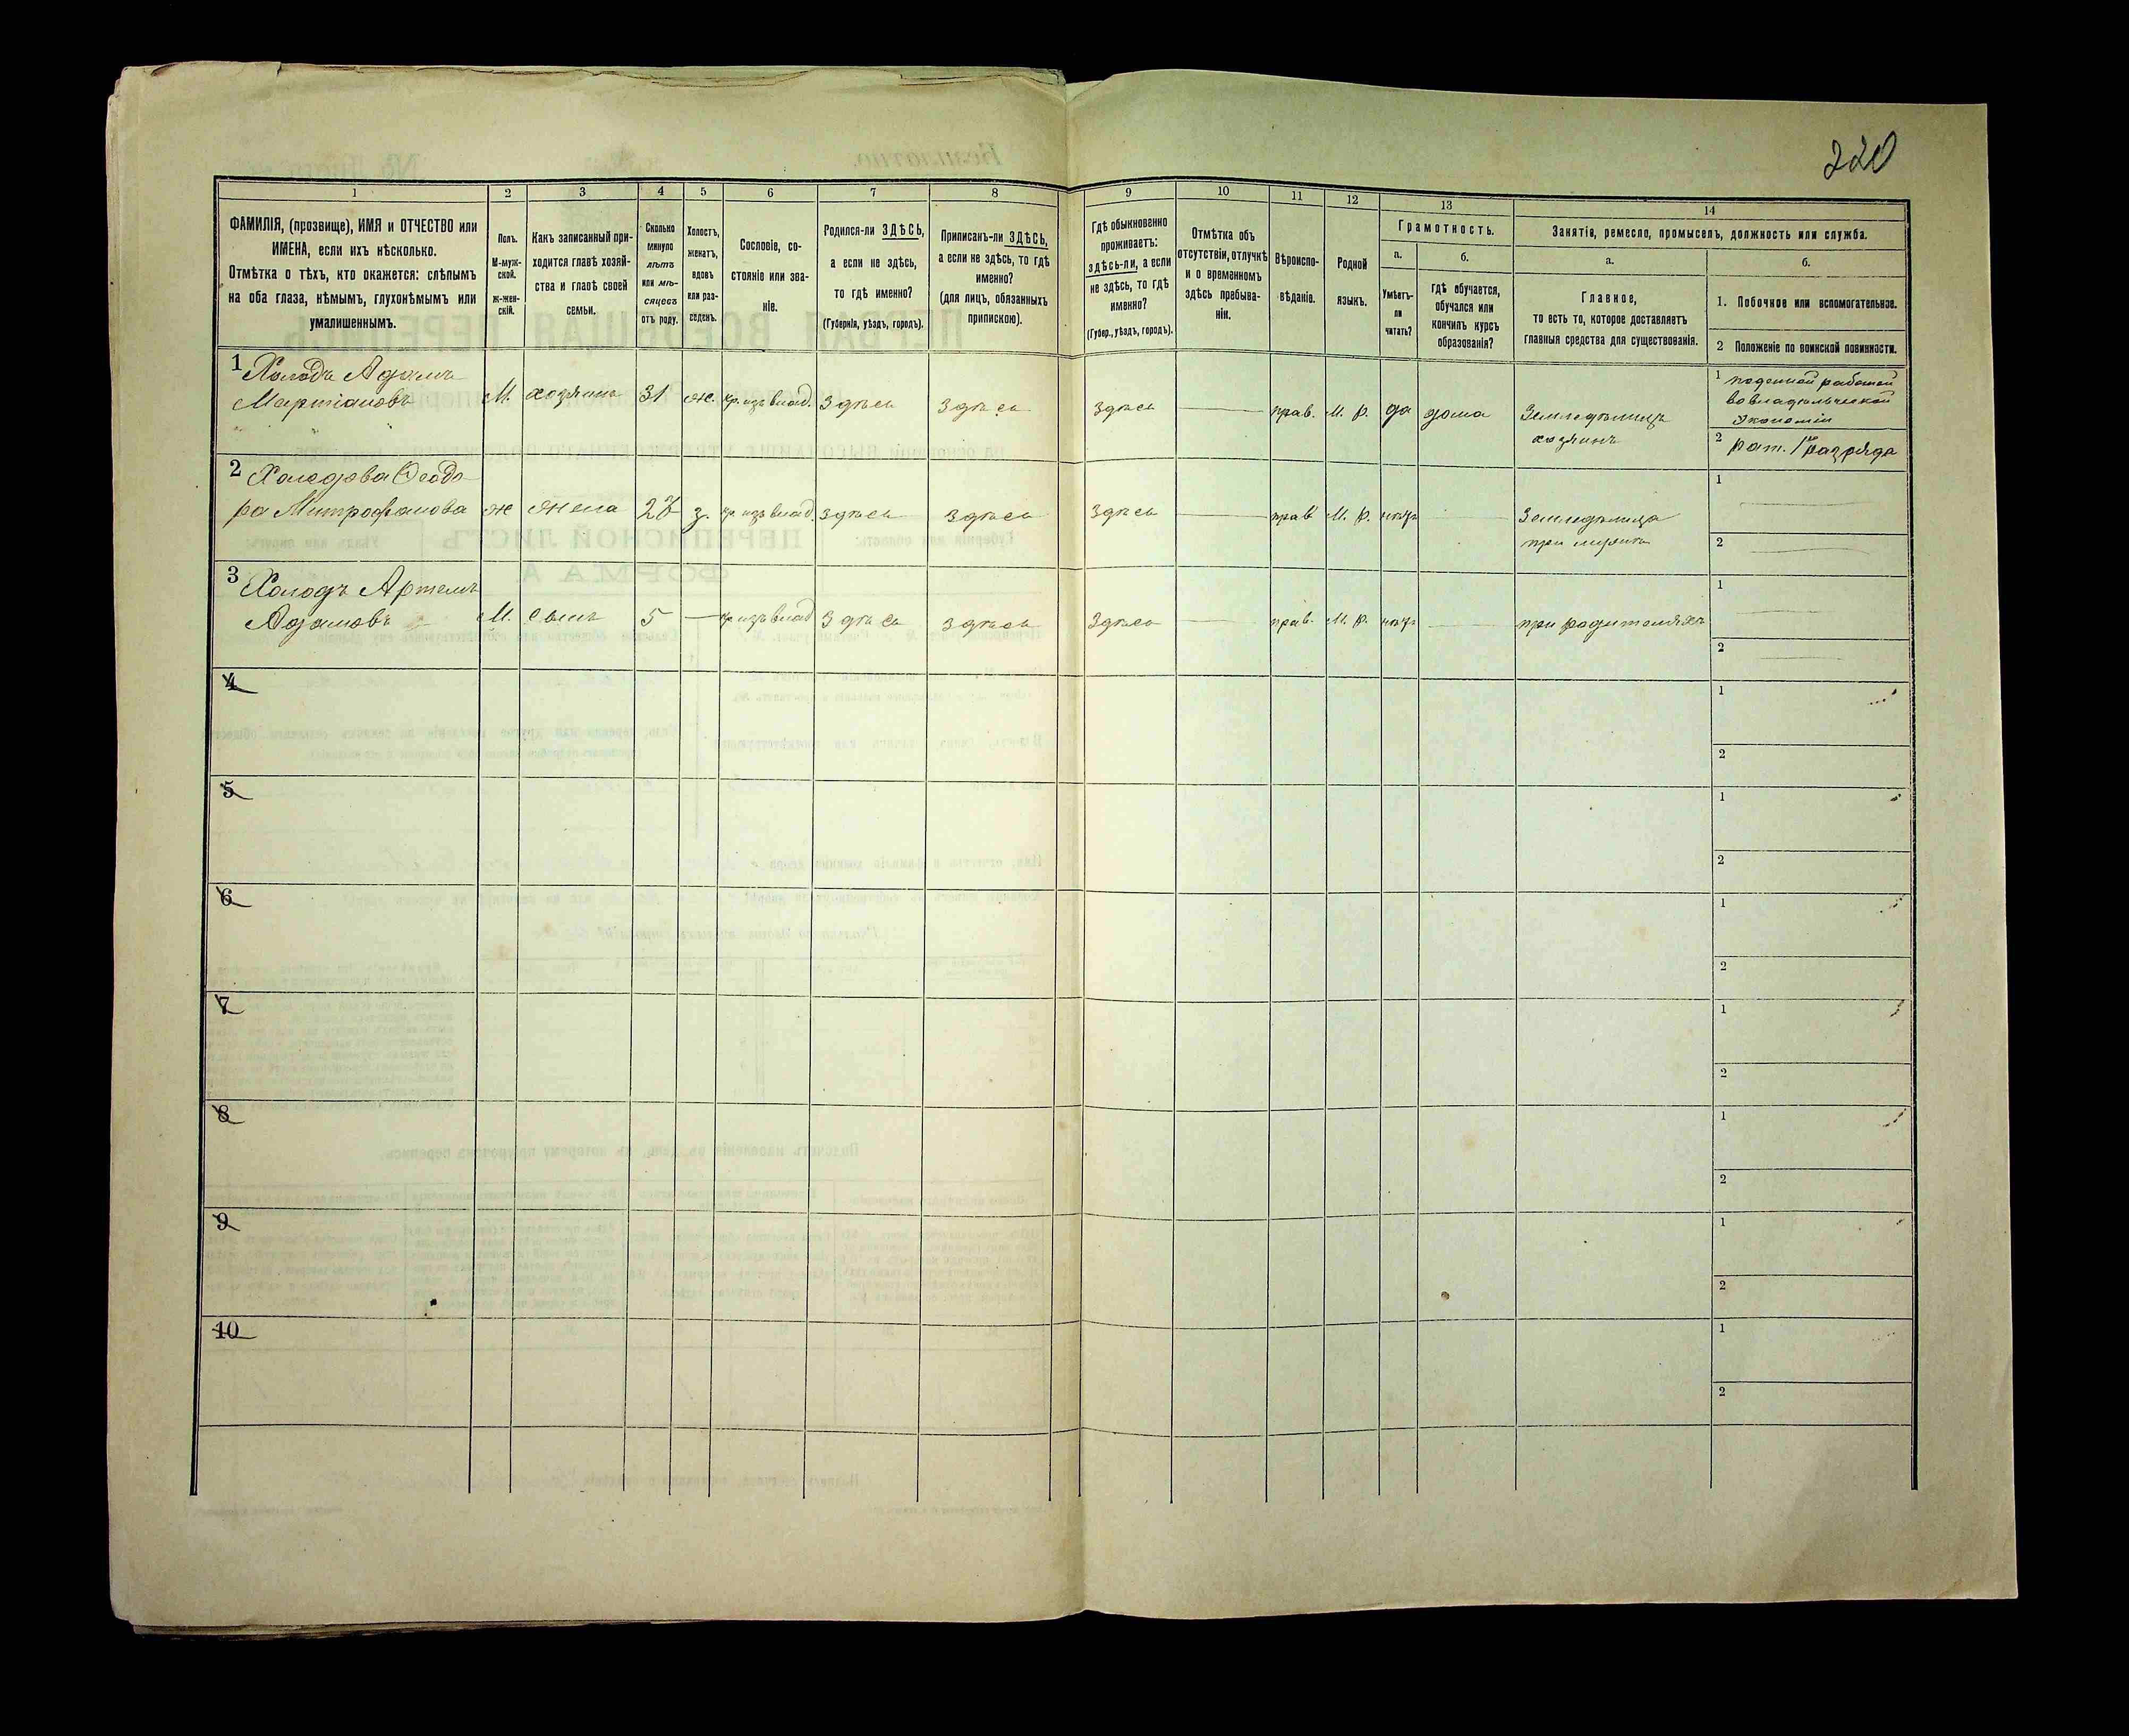 220
1 2 3 4 5 6 7 8 9 10 11 12 13 14
ФАМИЛІЯ, (прозвище), ИМЯ и ОТЧЕСТВО или
ИМЕНА, если ихъ нѣсколько.
Отмѣтка о тѣхъ, кто окажется: слѣпымъ
на оба глаза, нѣмымъ, глухонѣмымъ или
умалишеннымъ.
Полъ.
М-муж-
ской.
Ж-жен-
скій.
Какъ записанный при-
ходится главѣ хозяй-
ства и главѣ своей
семьи.
Сколько
минуло
лѣтъ
или мѣ-
сяцевъ
отъ роду.
Холостъ,
женатъ,
вдовъ
или раз-
веденъ.
Сословіе, со-
стояніе или зва-
ніе.
Родился-ли ЗДѢСЬ,
а если не здѣсь,
то гдѣ именно?
(Губернія, уѣздъ, городъ).
Приписанъ-ли ЗДѢСЬ,
а если не здѣсь, то гдѣ
именно?
(для лицъ, обязанныхъ
припискою).
Гдѣ обыкновенно
проживаетъ:
здѣсь-ли, а если
не здѣсь, то гдѣ
именно?
(Губер., уѣздъ, городъ).
Отмѣтка объ
отсутствіи, отлучкѣ
и о временномъ
здѣсь пребыва-
ніи.
Вѣроиспо-
вѣданіе.
Родной
языкъ.
Грамотность.
а.
Умѣетъ-
ли
читать?
б.
гдѣ обучается,
обучался или
кончилъ курсъ
образованія?
Занятіе, ремесло, промыселъ, должность или служба.
а.
Главное,
то есть то, которое доставляетъ
главныя средства для существованія.
б.
1. Побочное или вспомогательное.
2 Положеніе по воинской повинности.
1 Холодъ Адамъ
Мартіановъ М. хозяинъ 31 ж. кр. изъ влад. Здѣсь здѣсь здѣсь прав. М. р. да дома Земледѣлецъ
хозяинъ
1 поденной работой
во владѣльческой
экономіи
2 рат. 1го разряда
2 Холодова Ѳеодо-
ра Митрофанова ж жена з. кр. изъ влад. здѣсь здѣсь здѣсь прав М. р. нѣтъ
1
2
3 Холодъ Артемъ
Адамовъ М. сынъ 5 кр изъ влад здѣсь здѣсь здѣсь прав. М. р. нѣтъ при родителяхъ
1
2
4 1
2
5 1
2
6 1
2
7 1
2
8 1
2
9 1
2
10 1
2